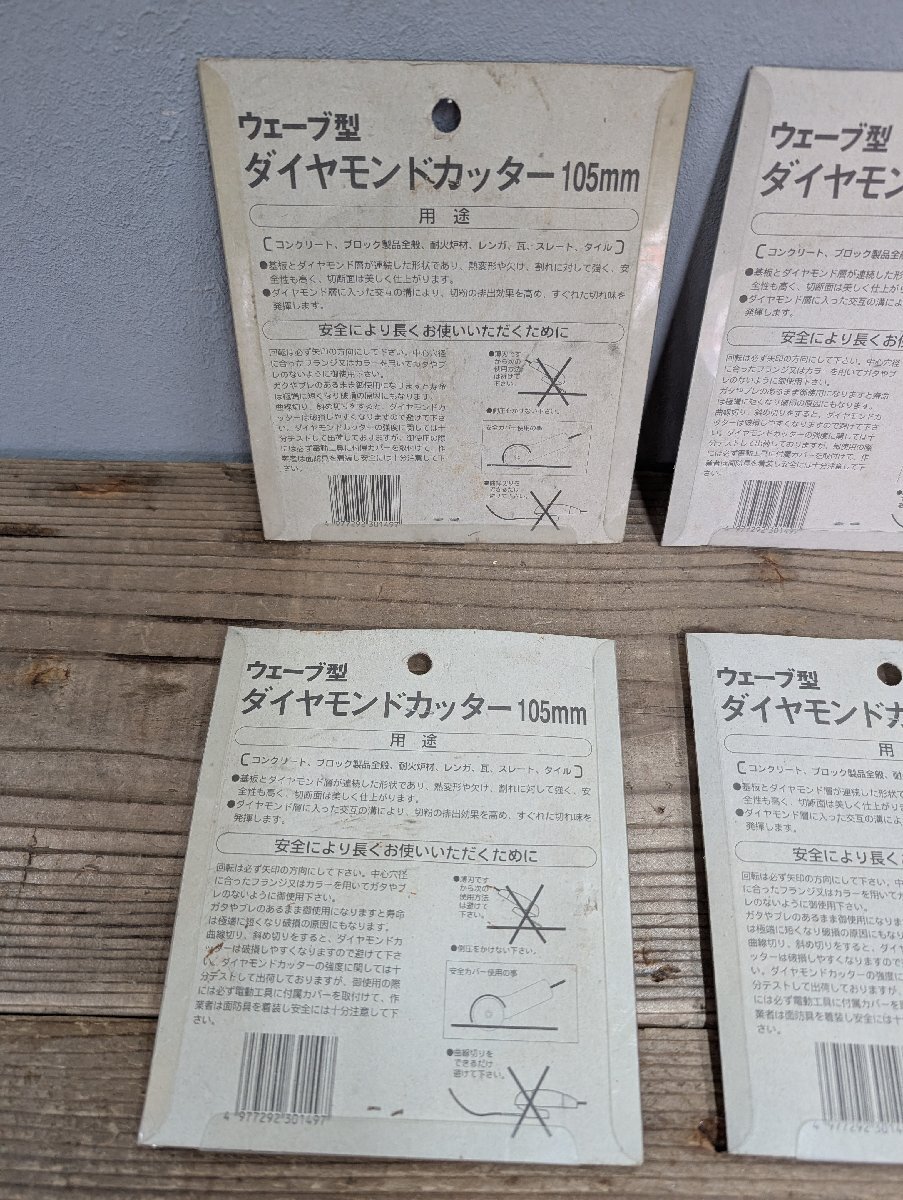 ウェーブ型
ダイヤモンドカッター 105mm
用途
〔コンクリート、ブロック製品全般、耐火炉材、レンガ、瓦、スレート、タイル〕
●基板とダイヤモンド層が連続した形状であり、熱変形や欠け、割れに対して強く、安
全性も高く、切断面は美しく仕上がります。
●ダイヤモンド層に入った交互の溝により、切粉の排出効果を高め、すぐれた切れ味を
発揮します。
安全により長くお使いいただくために
回転は必ず矢印の方向にして下さい。中心穴径
に合ったフランジ又はカラーを用いてガタやブ
レのないように御使用下さい。
ガタやブレのあるまま御使用になりますと寿命
は極端に短くなり破損の原因にもなります。
曲線切り、斜め切りをすると、ダイヤモンドカ
ッターは破損しやすくなりますので避けて下さ
い。ダイヤモンドカッターの強度に関しては十
分テストして出荷しておりますが、御使用の際
には必ず電動工具に付属カバーを取付けて、作
業者は面防具を着装し安全には十分注意して下
さい。
●薄刃です
から次の
使用方法
は避けて
下さい。
●側圧をかけない事。
安全カバー使用の事
●曲線切りを
できるだけ
避けて下さい。
4 977292 301497
ウェーブ型
ダイヤモン
〔コンクリート、ブロック製品全般
●基板とダイヤモンド層が連続した形
全性も高く、切断面は美しく仕上が
●ダイヤモンド層に入った交互の溝によ
発揮します。
安全により長くお使
回転は必ず矢印の方向にして下さい。中心穴径
に合ったフランジ又はカラーを用いてガタやブ
レのないように御使用下さい。
ガタやブレのあるまま御使用になりますと寿命
は極端に短くなり破損の原因にもなります。
曲線切り、斜め切りをすると、ダイヤモンドカ
ッターは破損しやすくなりますので避けて下さ
い。ダイヤモンドカッターの強度に関しては十
分テストして出荷しておりますが、御使用の際
には必ず電動工具に付属カバーを取付けて、作
業者は面防具を着装し安全には十分注意して下
さい。
ウェーブ型
ダイヤモンドカッター 105mm
用途
〔コンクリート、ブロック製品全般、耐火炉材、レンガ、瓦、スレート、タイル〕
●基板とダイヤモンド層が連続した形状であり、熱変形や欠け、割れに対して強く、安
全性も高く、切断面は美しく仕上がります。
●ダイヤモンド層に入った交互の溝により、切粉の排出効果を高め、すぐれた切れ味を
発揮します。
安全により長くお使いいただくために
回転は必ず矢印の方向にして下さい。中心穴径
に合ったフランジ又はカラーを用いてガタやブ
レのないように御使用下さい。
ガタやブレのあるまま御使用になりますと寿命
は極端に短くなり破損の原因にもなります。
曲線切り、斜め切りをすると、ダイヤモンドカ
ッターは破損しやすくなりますので避けて下さ
い。ダイヤモンドカッターの強度に関しては十
分テストして出荷しておりますが、御使用の際
には必ず電動工具に付属カバーを取付けて、作
業者は面防具を着装し安全には十分注意して下
さい。
●薄刃です
から次の
使用方法
は避けて
下さい。
●側圧をかけない事。
安全カバー使用の事
●曲線切りを
できるだけ
避けて下さい。
4 977292 301497
ウェーブ型
ダイヤモンドカ
用
〔コンクリート、ブロック製品全般、
●基板とダイヤモンド層が連続した形状で
全性も高く、切断面は美しく仕上がりま
●ダイヤモンド層に入った交互の溝により
発揮します。
安全により長くお
回転は必ず矢印の方向にして下さい。中
に合ったフランジ又はカラーを用いてガ
レのないように御使用下さい。
ガタやブレのあるまま御使用になりま
は極端に短くなり破損の原因にもなりま
曲線切り、斜め切りをすると、ダイヤ
ッターは破損しやすくなりますので
い。ダイヤモンドカッターの強度に
分テストして出荷しておりますが、
には必ず電動工具に付属カバーを
業者は面防具を着装し安全には十
さい。
4 977292 3014